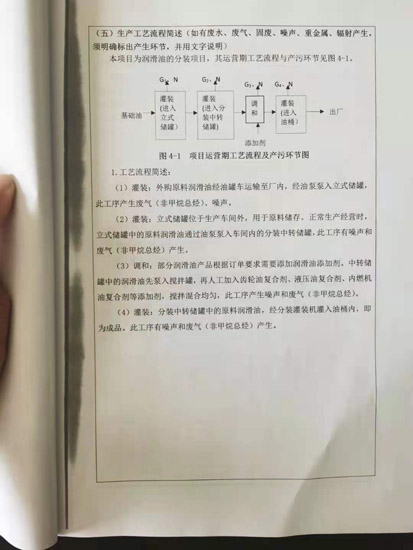 （五）生产工艺流程简述（如有废水、废气、固废、噪声、重金属、辐射产生，
须明确标出产生环节，并用文字说明）
本项目为润滑油的分装项目，其运营期工艺流程与产污环节见图 4-1。
G₁、N G₂、N G₃、N G₄、N
基础油 灌装（进入立式储罐） 灌装（进入分装中转储罐） 调和 灌装（进入油桶） 出厂
添加剂
图 4-1 项目运营期工艺流程及产污环节图
1.工艺流程简述：
（1）灌装：外购原料润滑油经油罐车运输至厂内，经油泵泵入立式储罐，
此工序产生废气（非甲烷总烃）、噪声。
（2）灌装：立式储罐位于生产车间外，用于原料储存。正常生产经营时，
立式储罐中的原料润滑油通过油泵泵入车间内的分装中转储罐，此工序有噪声和
废气（非甲烷总烃）产生。
（3）调和：部分润滑油产品根据订单要求需要添加润滑油添加剂，中转储
罐中的润滑油先泵入搅拌罐，再人工加入齿轮油复合剂、液压油复合剂、内燃机
油复合剂等添加剂，搅拌混合均匀，此工序产生噪声和废气（非甲烷总烃）。
（4）灌装：分装中转储罐中的原料润滑油，经分装灌装机灌入油桶内，即
为成品。此工序有噪声和废气（非甲烷总烃）产生。